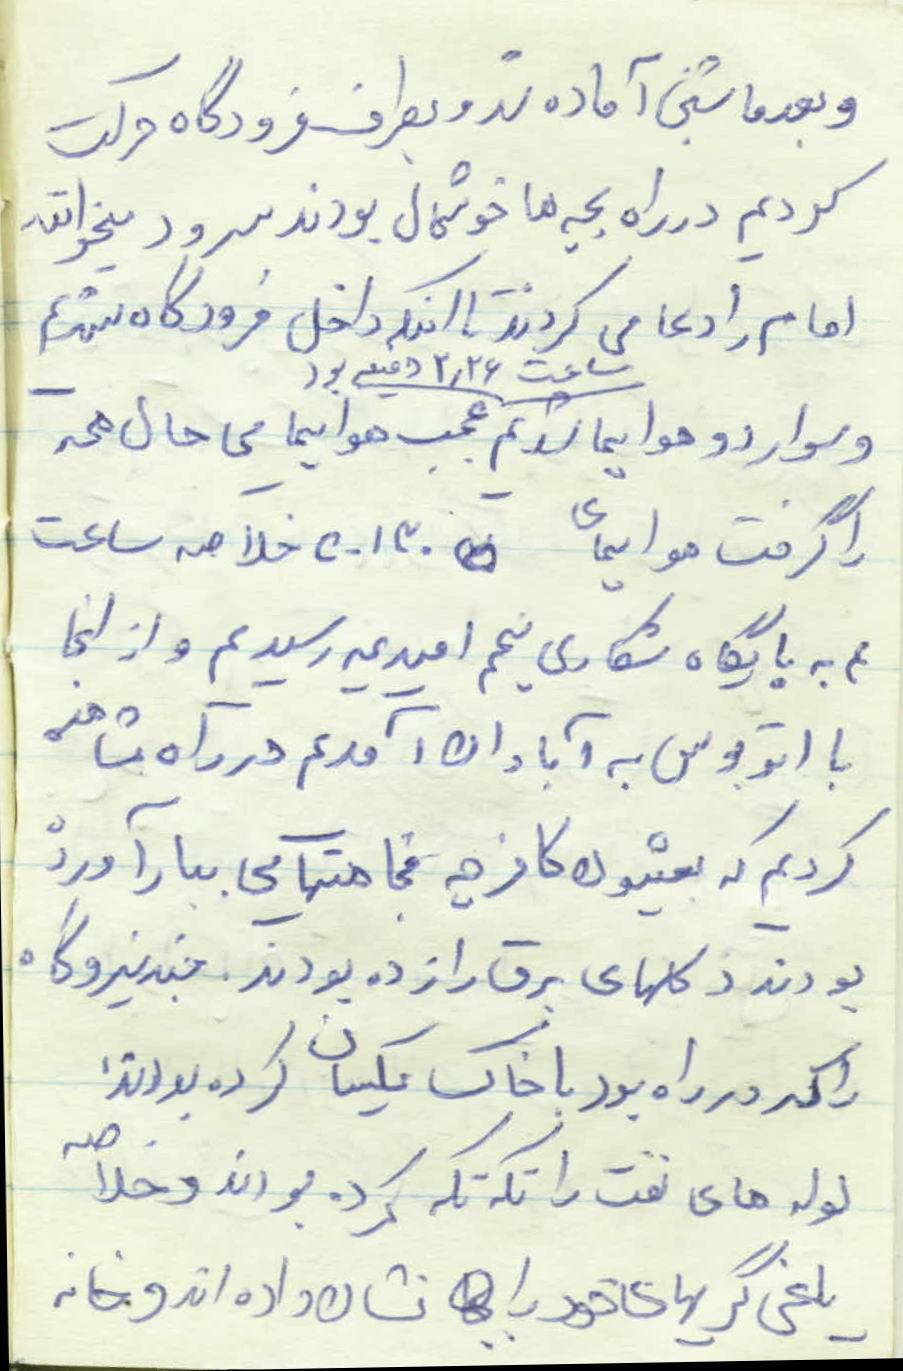 و بعد ماشین آماده شد و بطرف فرودگاه حرکت
کردیم در راه بچه ها خوشحال بودند سرود میخواندند
امام را دعا می کردند تا اینکه داخل فرودگاه شدیم
ساعت ۲٫۲۶ دقیقه بود
و سوار دو هواپیما شدیم عجب هواپیمایی حال همه
را گرفت هواپیمای ۱۳۰-c خلاصه ساعت
۳ به پایگاه شکاری پنجم امیدیه رسیدیم و از انجا
با اتوبوس به آبادان آمدیم در راه مشاهده
کردیم که بعثیون کافر چه فجاهتهایی ببار آورده
بودند دکلهای برق را زده بودند. چند نیروگاه
را که در راه بود با خاک یکسان کرده بودند
لوله های نفت را تکه تکه کرده بودند و خلاصه
یاغی گریهای خود را نشان داده اند و خانه